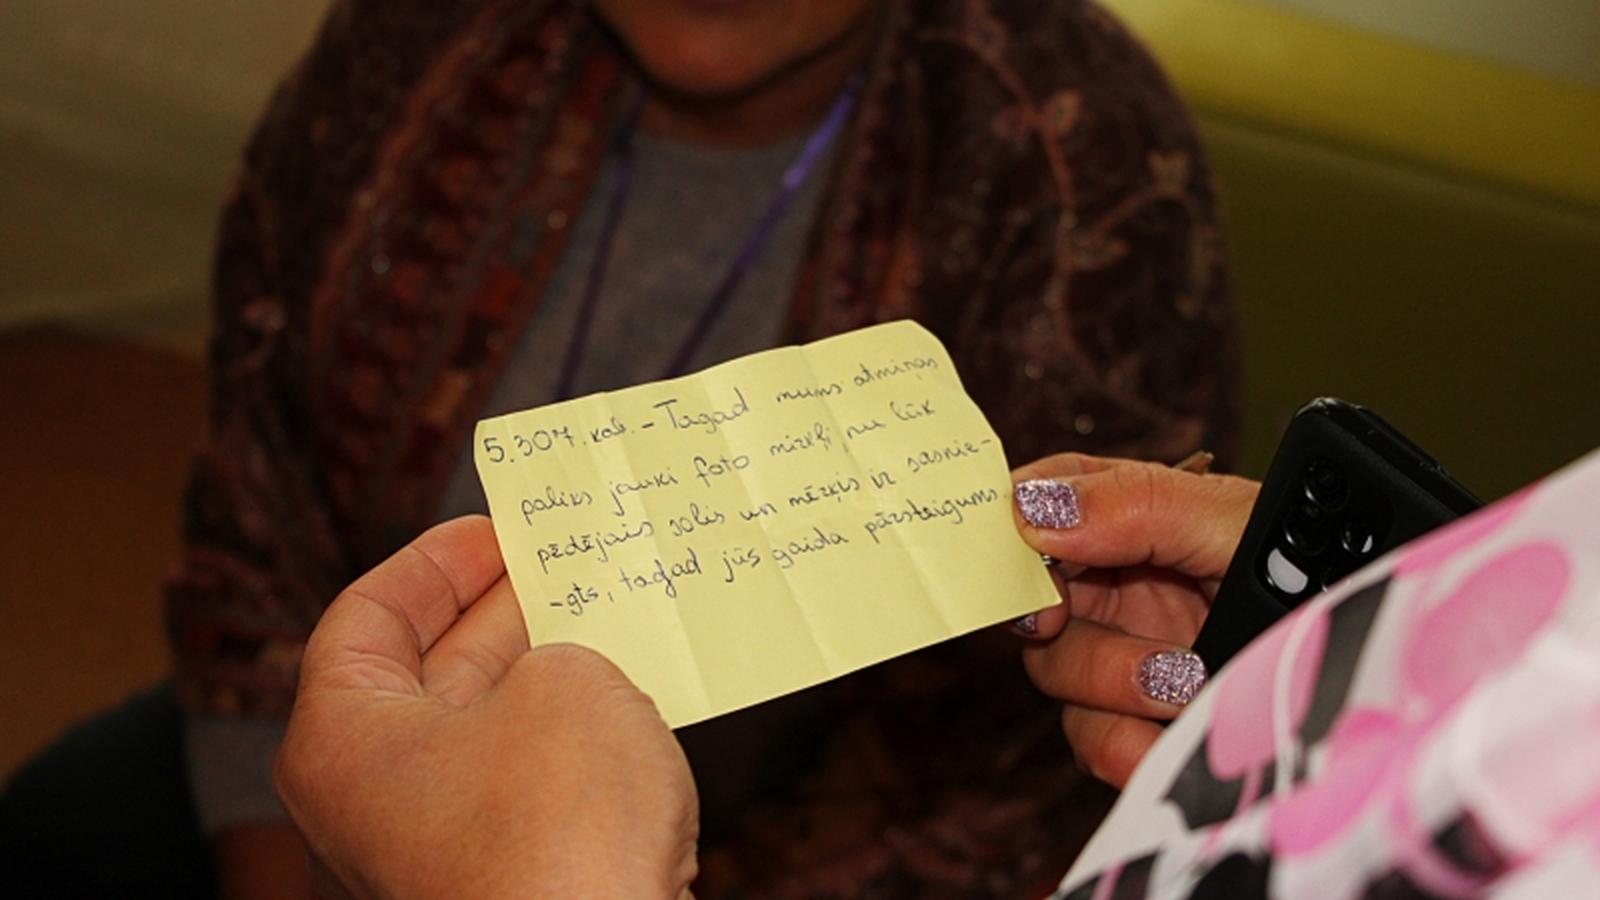 5.307. kab. - Tagad mums atmiņas
paliks jauki foto mirkļi, nu lūk
pēdējais solis un mērķis ir sasnie-
-gts, tagad jūs gaida pārsteigums.